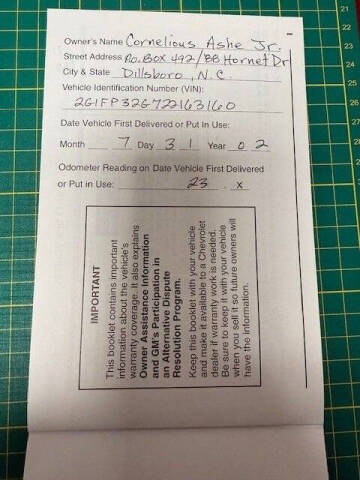 Owner's Name Cornelious Ashe Jr.
Street Address P.O. Box 492/88 Hornet Dr
City & State Dillsboro, N.C.
Vehicle Identification Number (VIN):
2G1FP32G722163160
Date Vehicle First Delivered or Put In Use:
Month 7 Day 31 Year 02
Odometer Reading on Date Vehicle First Delivered
or Put in Use: 23 . x
IMPORTANT
This booklet contains important
information about the vehicle's
warranty coverage. It also explains
Owner Assistance Information
and GM's Participation in
an Alternative Dispute
Resolution Program.
Keep this booklet with your vehicle
and make it available to a Chevrolet
dealer if warranty work is needed.
Be sure to keep it with your vehicle
when you sell it so future owners will
have the information.
22
23
24
25
26
27